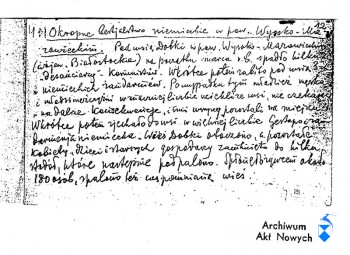 45) Okropne bestjalstwo niemieckie w pow. Wysoko-Ma- 12
zowieckim. Pod wsią Dobki w pow. Wysoko-Mazowieckim
(wojew. Białostockie) na początku marca r.b. spadło kilku
"Desanciarzy"-Komunistów. Wkrótce potem zabito pod wsią
niemieckich żandarmów. Po wypadku tym młodzież męska
i wieś nie czekając
na dalsze konsekwencje, inni wszyscy pozostali na miejscu.
Wkrótce potem zjechała do wsi w większej liczbie Gestapo i żan-
darmerja niemiecka. Wieś Dobki otoczono, a pozostałe
kobiety, dzieci i starszych gospodarzy zamknięto do kilku
stodół, które następnie podpalono. Spłonęło żywcem około
180 osób, spalono też wspomnianą wieś.
Archiwum
Akt Nowych